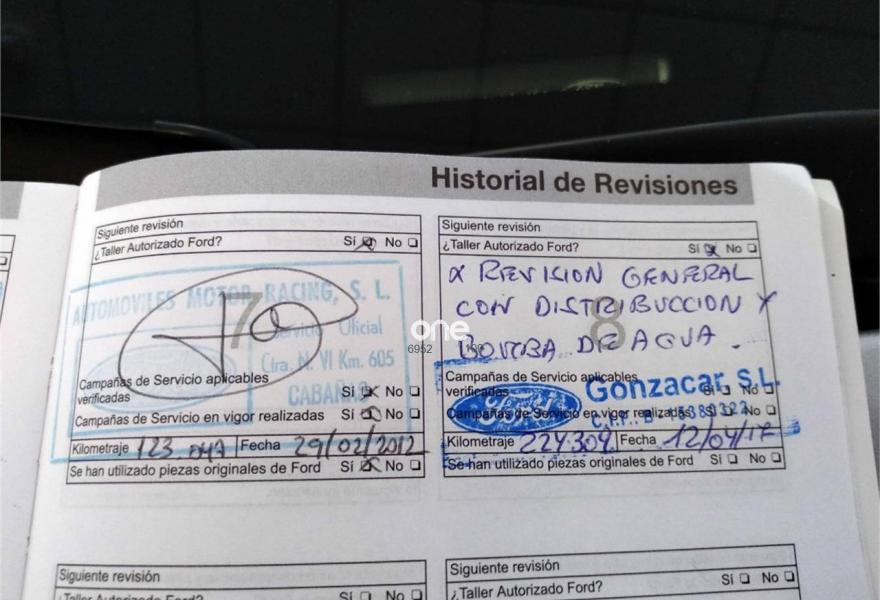 Historial de Revisiones
Siguiente revisión
¿Taller Autorizado Ford? Sí No
AUTOMOVILES MOTOR RACING, S. L.
7
Servicio Oficial
Ctra. N. VI Km. 605
CABANAS
Campañas de Servicio aplicables
verificadas Sí No
Campañas de Servicio en vigor realizadas Sí No
Kilometraje 123.047 Fecha 29/02/2012
Se han utilizado piezas originales de Ford Sí No
Siguiente revisión
¿Taller Autorizado Ford? Sí No
REVISION GENERAL
CON DISTRIBUCCION Y
8
BOMBA DE AGUA.
Campañas de Servicio aplicables
verificadas Sí No
Gonzacar, S.L.
Ford
Campañas de Servicio en vigor realizadas Sí No
C.I.F.:
Kilometraje 224.309 Fecha 12/04/17
Se han utilizado piezas originales de Ford Sí No
one
6952
Siguiente revisión
¿Taller Autorizado Ford? Sí No
Siguiente revisión
¿Taller Autorizado Ford? Sí No